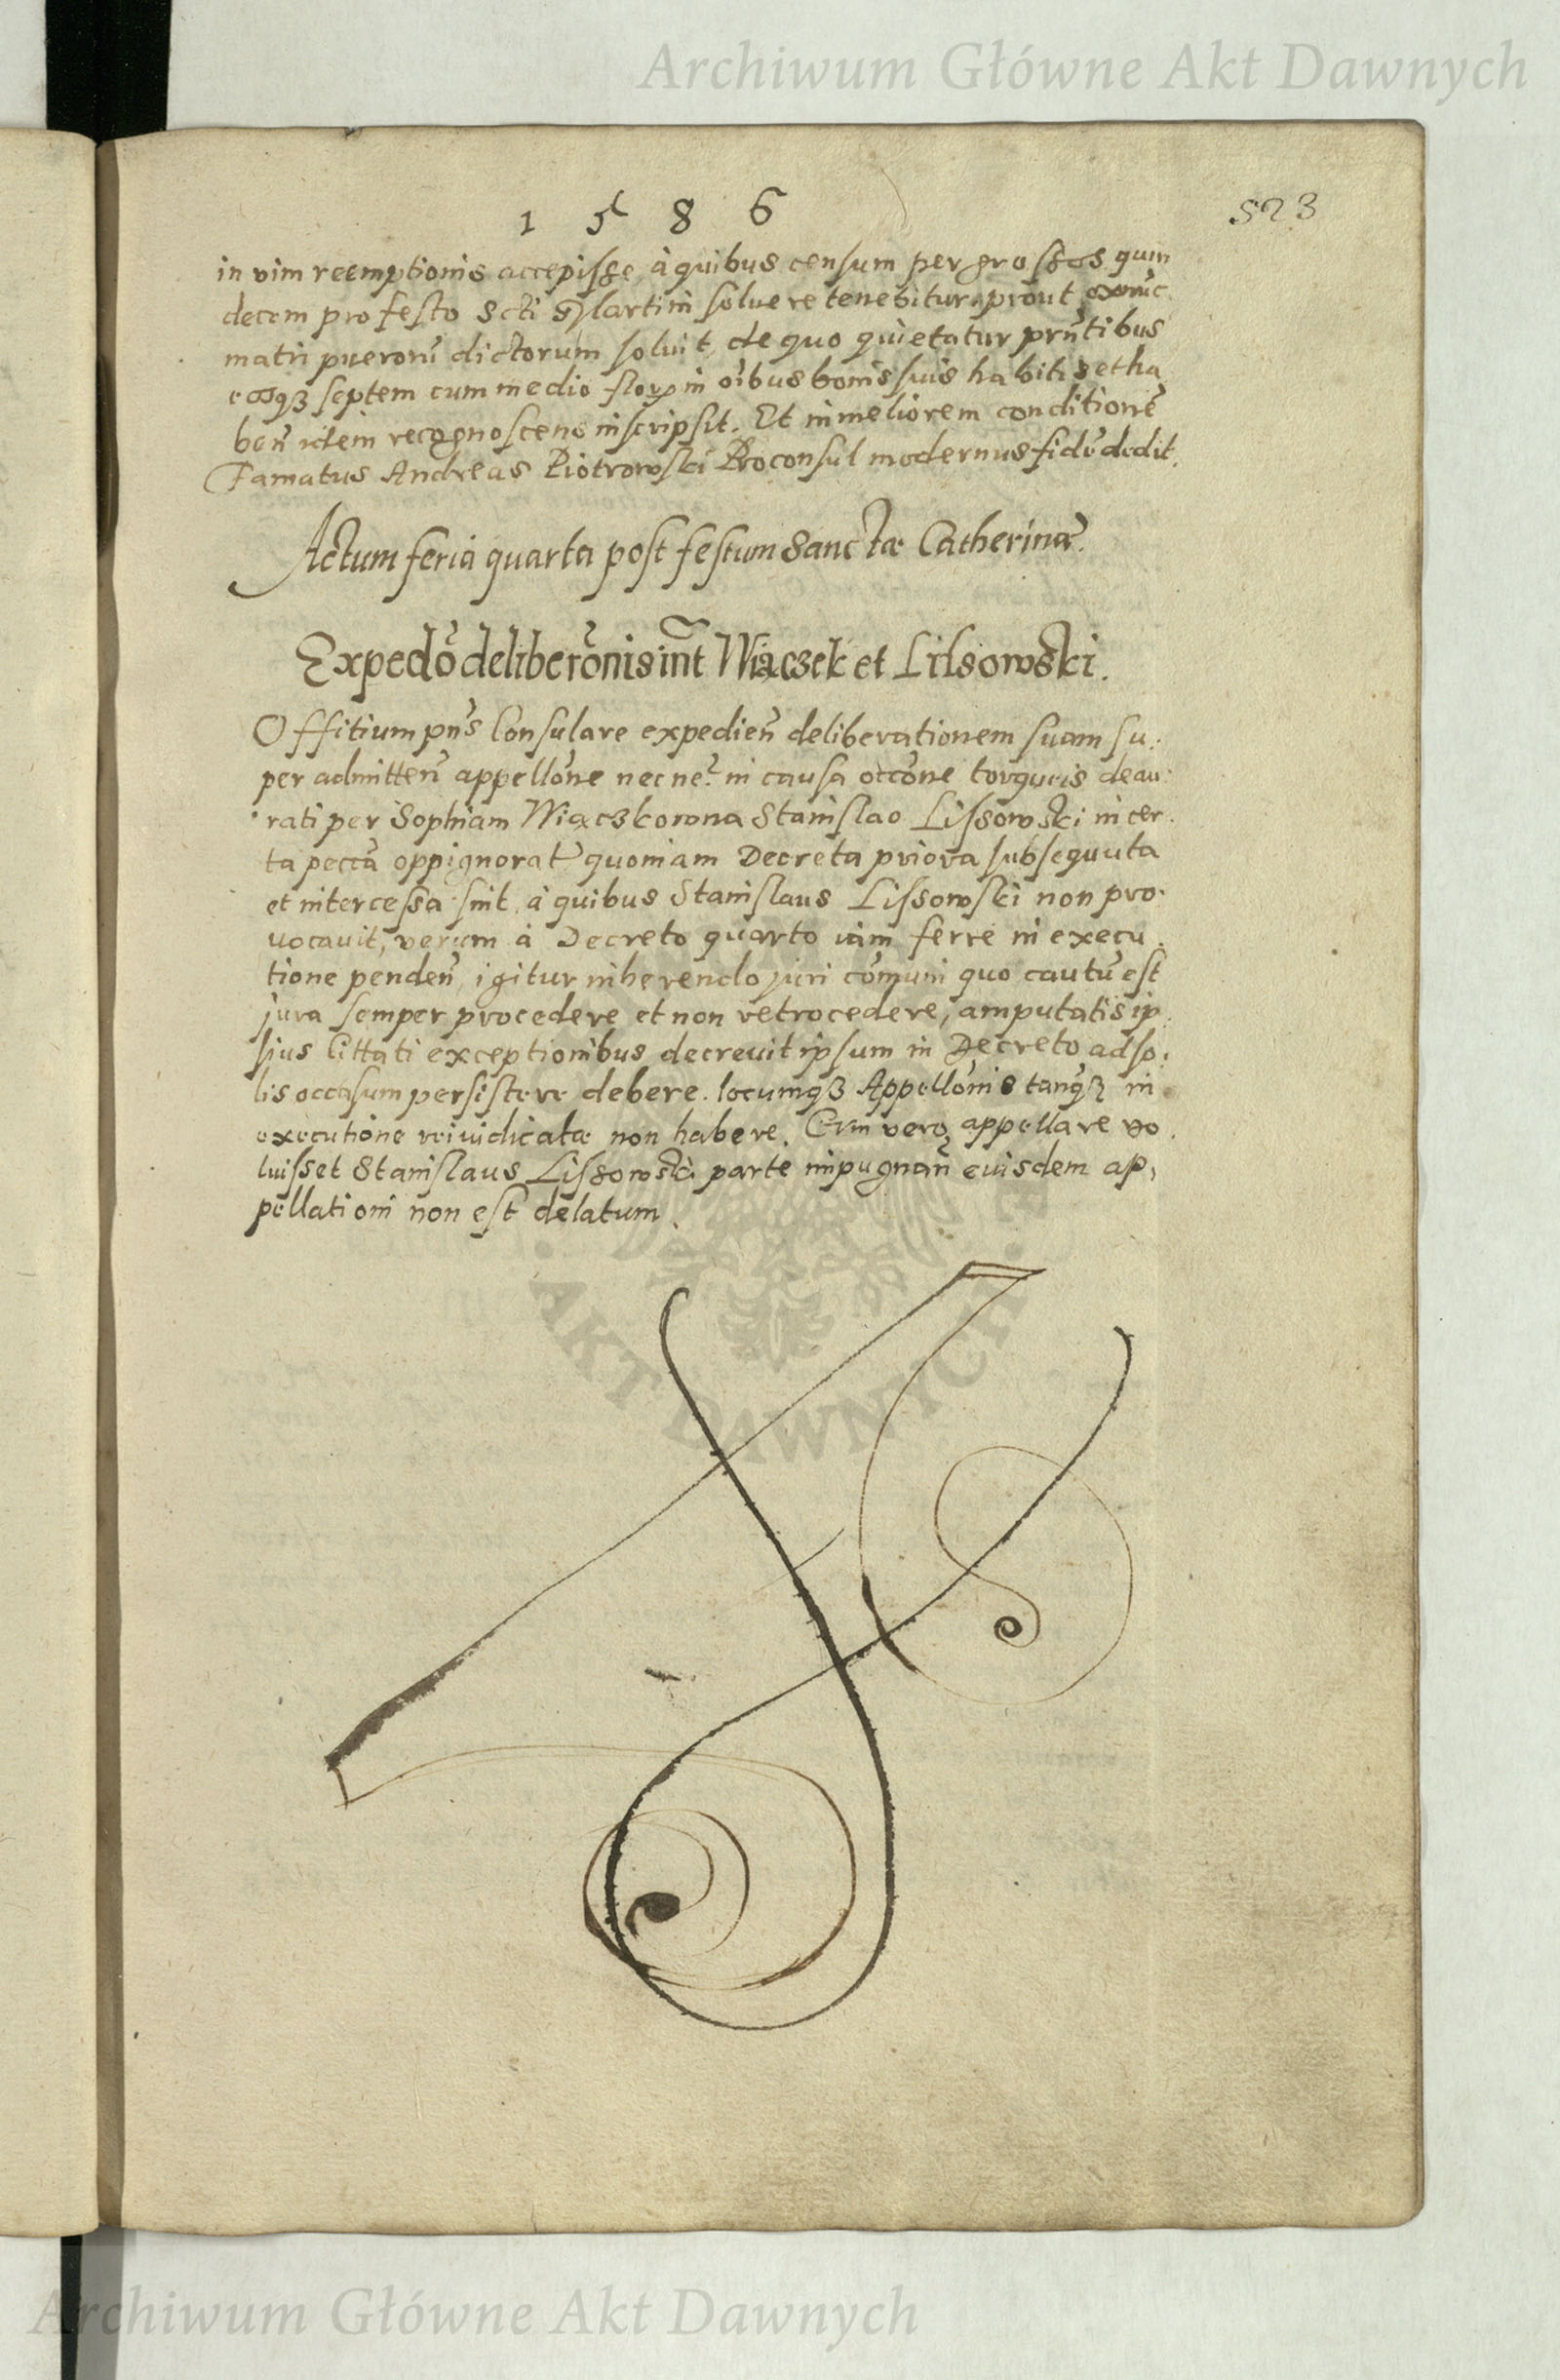 Archiwum Główne Akt Dawnych
1 5 8 6
523
in vim reemptionis accepisse, à quibus censum per grossos quin
decem pro festo Scti Martini soluere tenebitur, prout ex nūc
matri pueroru dictorum soluit, de quo quietatur prn̄tibus
eosqȝ septem cum medio flor in oībus bonis suis habitis et ha
ben̄ idem recognoscens inscripsit. Et in meliorem conditionē
Famatus Andreas Piotrowski Proconsul modernus fidē dedit.
Actum feria quarta post festum Sanctæ Catherinæ.
Expedō deliberōnis int̄ Wiączek et Lilsowski.
Offitium pn̄s Consulare expedien̄ deliberationem suam su:
per admitten̄ appellōne nec ne? in causa occōne torquis deau:
rati per Sophiam Wiączkowna Stanislao Lissowski in cer.
ta peccā oppignorat quoniam Decreta priora subsequuta
et intercessa sint, à quibus Stanislaus Lissowski non pro:
uocauit, verum à Decreto quarto iam ferre in execu.
tione penden̄, igitur inherendo juri cōmuni quo cautū est
jura semper procedere et non retrocedere, amputatis ip.
sius Cittati exceptionibus decreuit ipsum in Decreto ad so.
lis occasum persistere debere. locumqȝ Appellōnis tanqȝ in
executione rei iudicatæ non habere. Cum vero appellare vo.
luisset Stanislaus Lissowski parte impugnan̄ euisdem ap,
pellationi non est delatum.
AKT DAWNYCH
Archiwum Główne Akt Dawnych